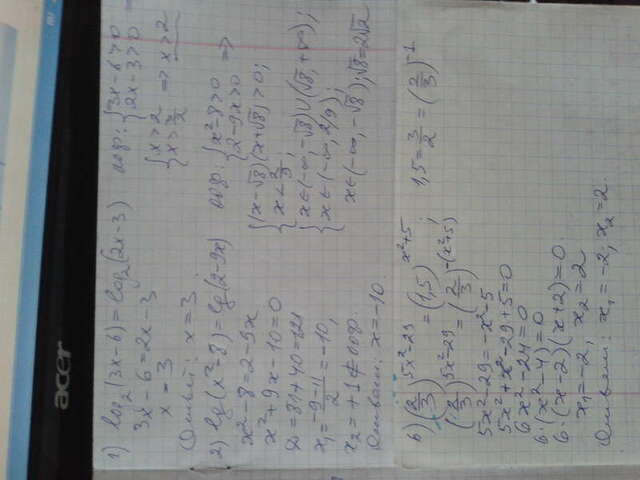 acer
1) log₂(3x-6) = log₂(2x-3) ООФ: {3x-6>0
2x-3>0
3x-6=2x-3 {x>2
x>3/2 => x>2
x = 3
Ответ: x=3.
2) lg(x²-8)=lg(2-9x) ООФ: {x²-8>0
2-9x>0 =>
x²-8=2-9x {(x-√8)(x+√8)>0;
x<2/9;
x²+9x-10=0 {x∈(-∞,-√8)∪(√8,+∞);
x∈(-∞, 2/9);
D=81+40=121
x₁=(-9-11)/2=-10, x∈(-∞,-√8); √8=2√2
x₂=+1∉ООФ.
Ответ: x=-10.
б) (2/3)^(5x²-29) = (1,5)^(x²+5) 1,5=3/2=(2/3)^(-1)
(2/3)^(5x²-29) = (2/3)^(-(x²+5));
5x²-29=-x²-5
5x²+x²-29+5=0
6x²-24=0
6·(x²-4)=0
6·(x-2)(x+2)=0
x₁=-2, x₂=2
Ответ: x₁=-2; x₂=2.